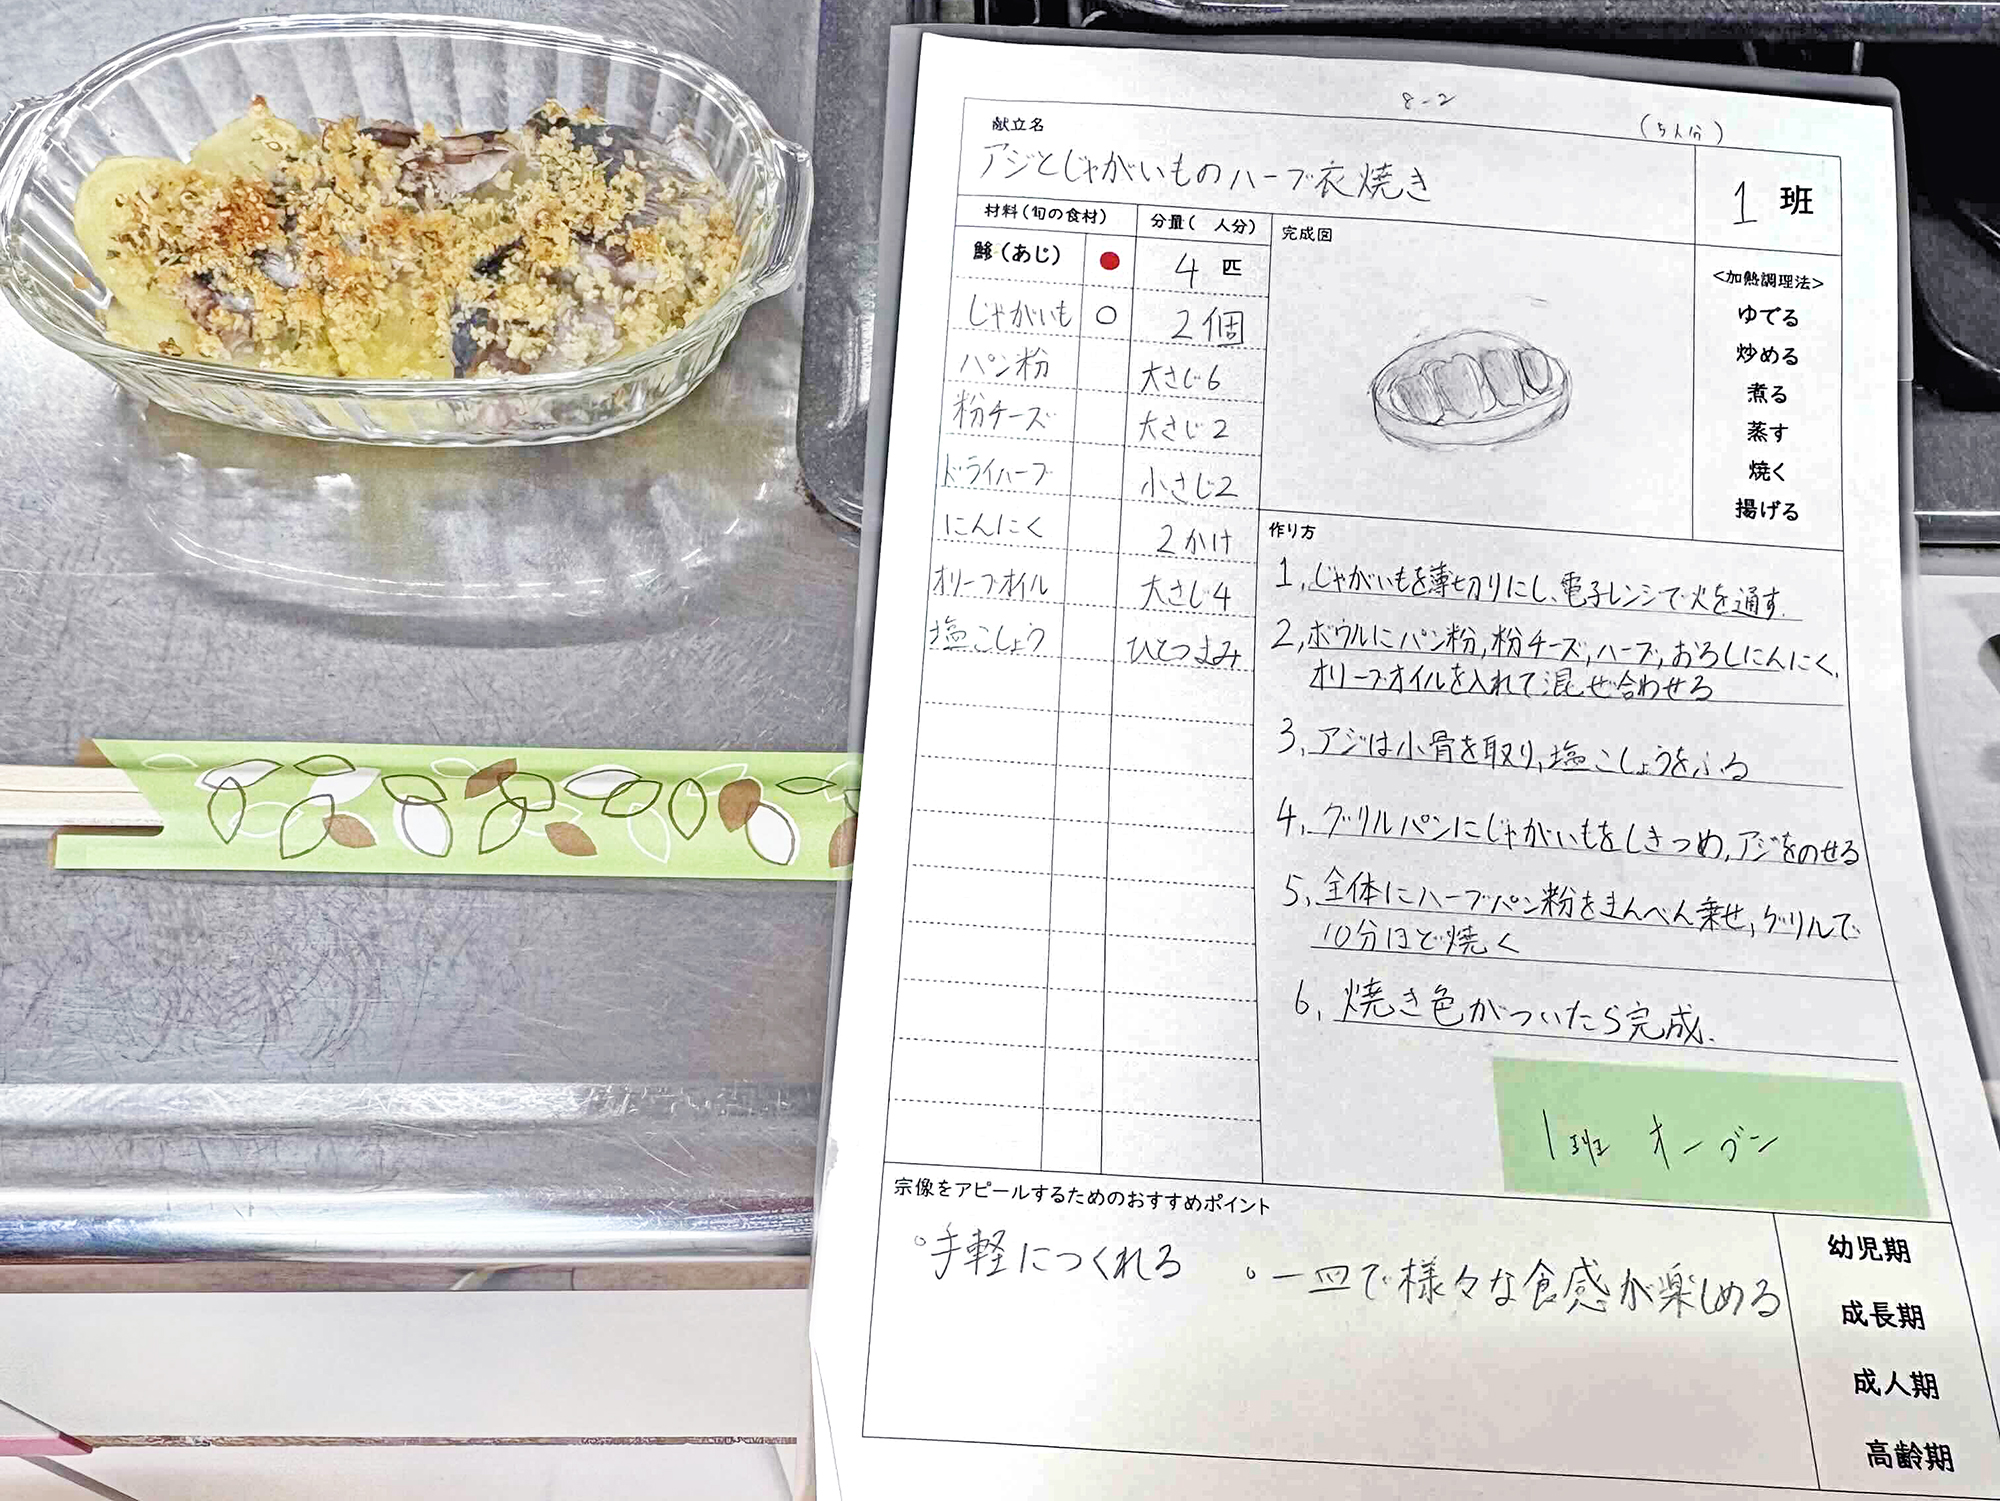 8-2
(5人分)
献立名
アジとじゃがいものハーブ衣焼き
1 班
材料(旬の食材)
分量( 人分)
鯵(あじ) ● 4 匹
じゃがいも ○ 2個
パン粉 大さじ6
粉チーズ 大さじ2
ドライハーブ 小さじ2
にんにく 2かけ
オリーブオイル 大さじ4
塩こしょう ひとつまみ
完成図
<加熱調理法>
ゆでる
炒める
煮る
蒸す
焼く
揚げる
作り方
1, じゃがいもを薄切りにし、電子レンジで火を通す.
2, ボウルにパン粉, 粉チーズ, ハーブ, おろしにんにく,
オリーブオイルを入れて混ぜ合わせる
3, アジは小骨を取り, 塩こしょうをふる
4, グリルパンにじゃがいもをしきつめ, アジをのせる
5, 全体にハーブパン粉をまんべん乗せ, グリルで
10分ほど焼く
6, 焼き色がついたら完成.
1班 オーブン
宗像をアピールするためのおすすめポイント
°手軽につくれる °一皿で様々な食感が楽しめる
幼児期
成長期
成人期
高齢期